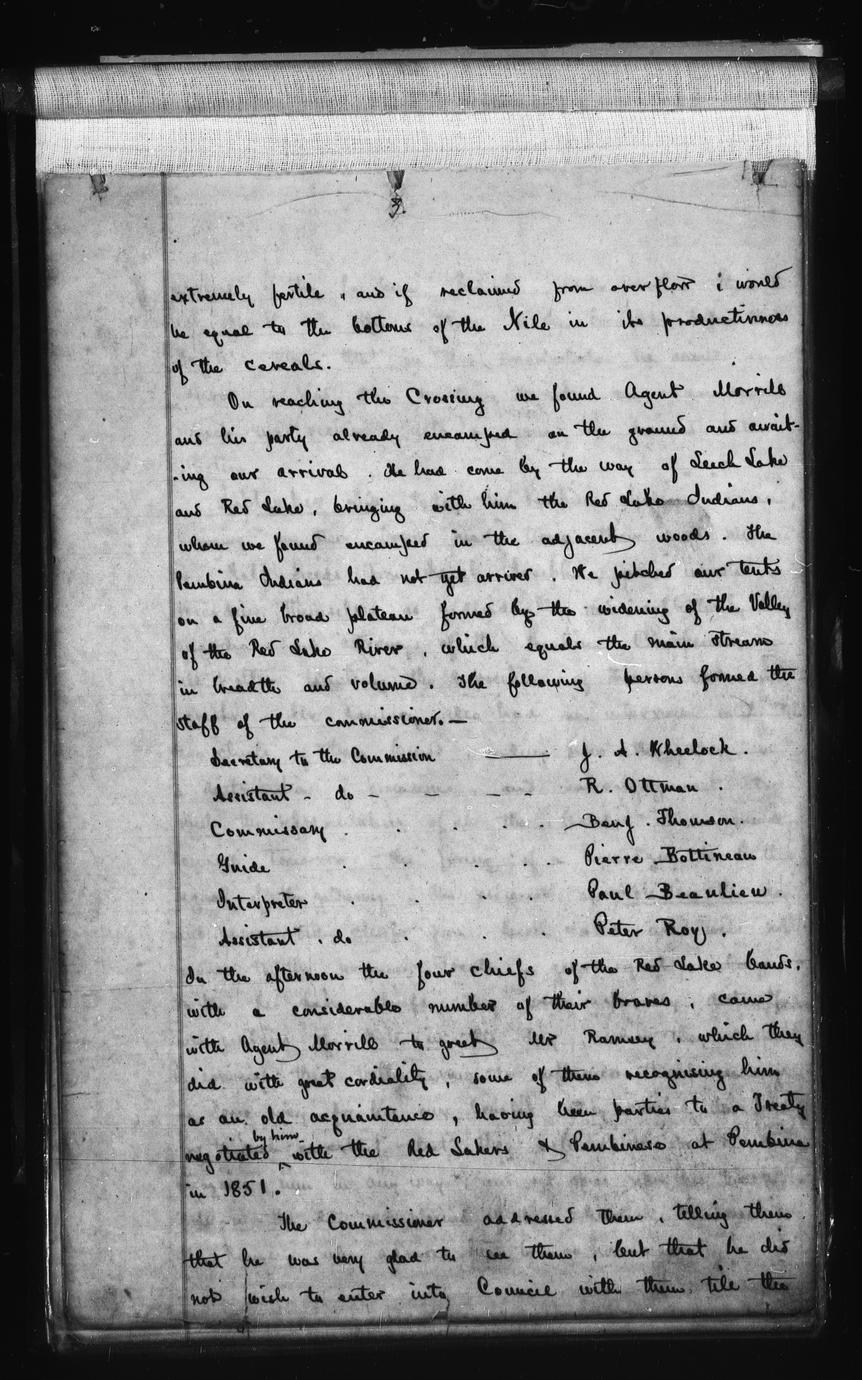 extremely fertile, and if reclaimed from overflow it would
be equal to the bottoms of the Nile in its productiveness
of the cereals.
On reaching the Crossing we found Agent Morrill
and his party already encamped on the ground and await-
-ing our arrival. He had come by the way of Leech Lake
and Red Lake, bringing with him the Red Lake Indians,
whom we found encamped in the adjacent woods. The
Pembina Indians had not yet arrived. We pitched our tents
on a fine broad plateau formed by the widening of the Valley
of the Red Lake River, which equals the main stream
in breadth and volume. The following persons formed the
staff of the commissioner.—
Secretary to the Commission —— J. A. Wheelock.
Assistant - do - - - - R. Ottman.
Commissary . . . . . Benj. Thomson.
Guide . . . . Pierre Bottineau
Interpreter . . . . Paul Beaulieu.
Assistant. do . . . Peter Roy.
In the afternoon the four chiefs of the Red Lake bands,
with a considerable number of their braves, came
with Agent Morrill to greet Mr Ramsey, which they
did with great cordiality, some of them recognising him
as an old acquaintance, having been parties to a Treaty
negotiated by him with the Red Lakers & Pembinas at Pembina
in 1851.
The Commissioner addressed them, telling them
that he was very glad to see them, but that he did
not wish to enter into Council with them till the